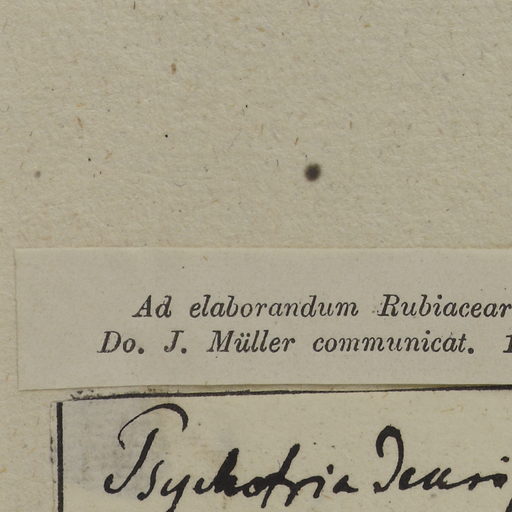 Ad elaborandum Rubiacear
Do. J. Müller communicat. 1
Psychotria